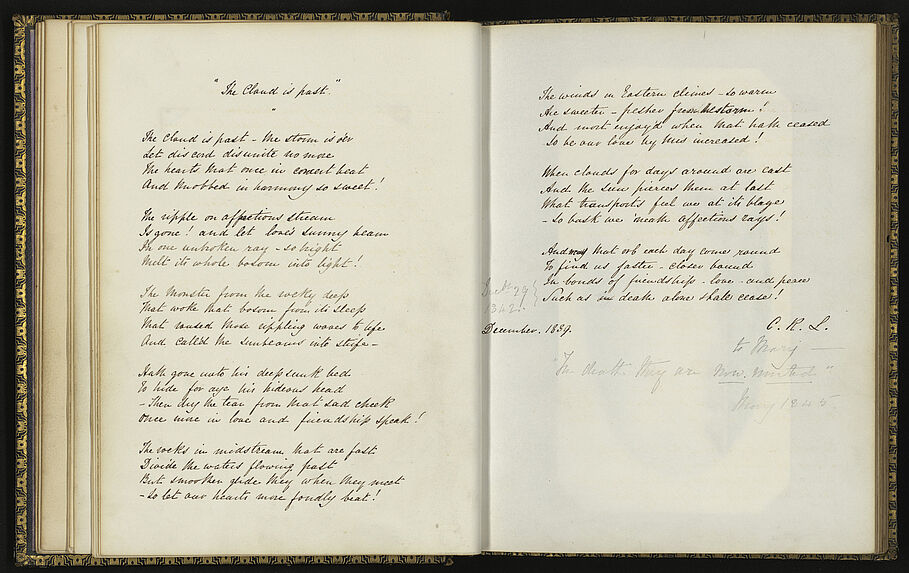 "The Cloud is past."
The cloud is past - the storm is o'er
Let discord disunite no more
The hearts that once in concert beat
And throbbed in harmony so sweet!
The ripple on affections stream
Is gone! and let love's sunny beam
In one unbroken ray - so bright
Melt its whole bosom into light!
The Monster from the rocky deep
That woke that bosom from its sleep
That raused those rippling waves to life
And call'd the sunbeams into strife -
Hath gone unto his deep sunk bed
To hide for aye his hideous head
- Then dry the tear from that sad cheek
Once more in love and friendship speak!
The rocks in midstream that are fast
Divide the waters flowing past
But smoother glide they when they meet
- So let our hearts more fondly beat!
The winds in Eastern climes - so warm
Are sweeter - fresher from the storm!
And most enjoy'd when that hath ceased
So be our love by this increased!
When clouds for days around are cast
And the Sun pierces them at last
What transports feel we at its blaze
- So bask we 'neath affections rays!
And may that orb each day come round
To find us faster - closer bound
In bonds of friendship - love - and peace
Such as in death alone shall cease!
Dec 29
1842.
December. 1839.
C. R. L.
to Mary -
"In death they are now united"
Mary 1845.